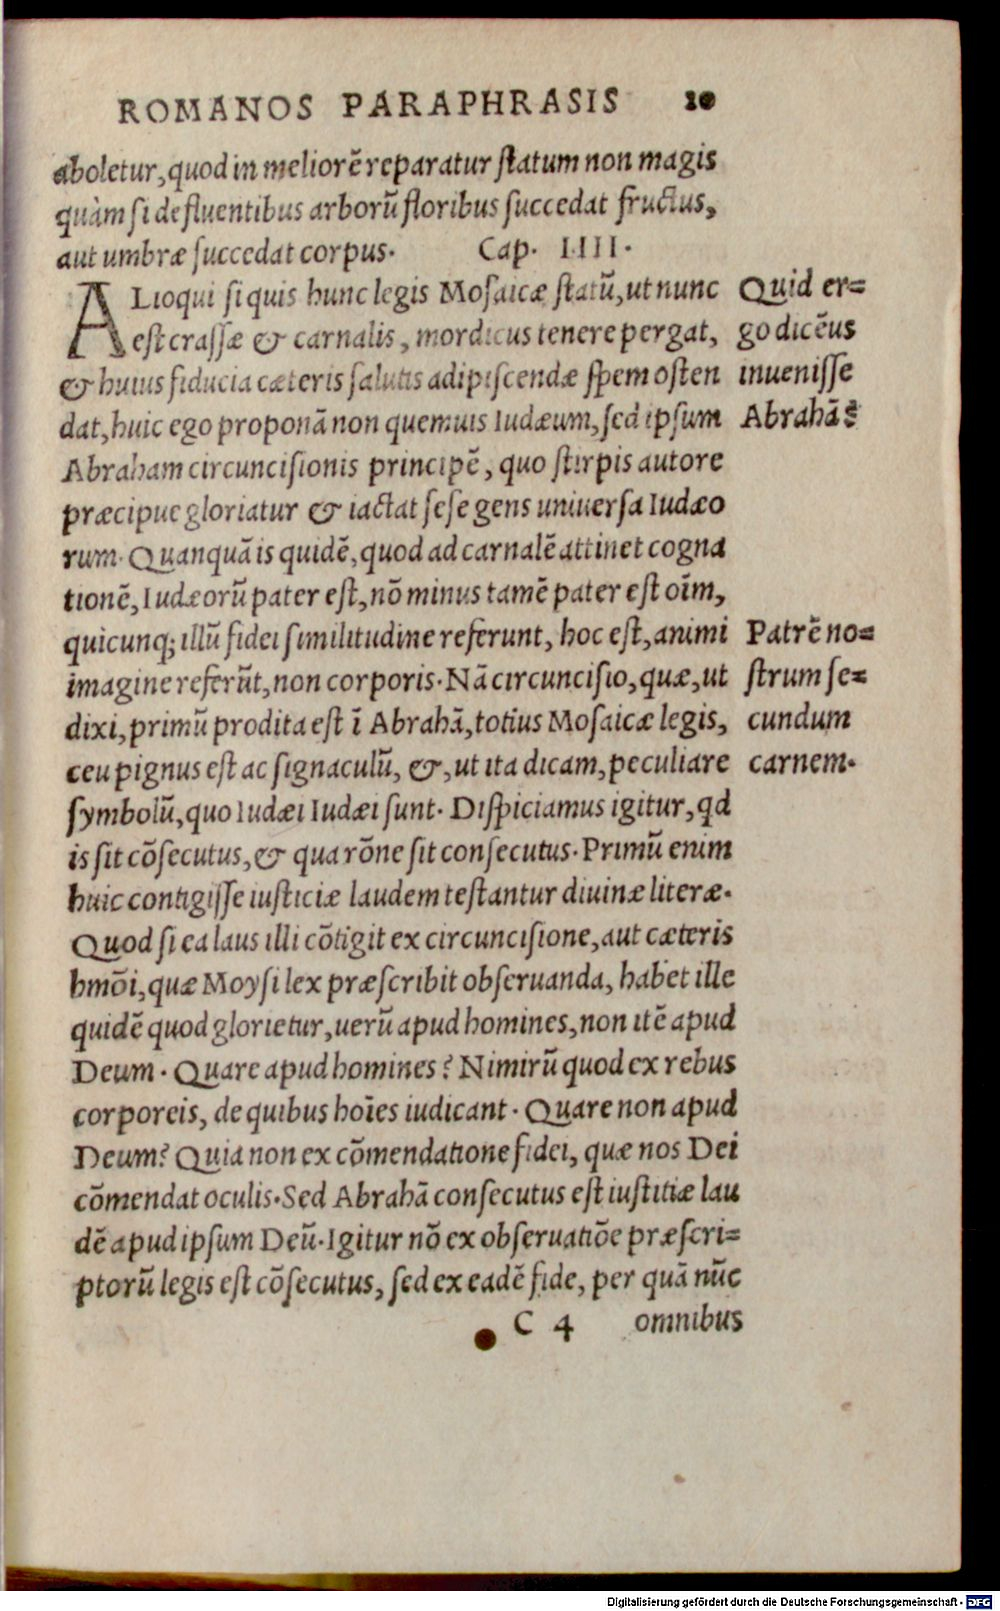 ROMANOS PARAPHRASIS 20
aboletur, quod in meliorē reparatur ſtatum non magis
quàm ſi defluentibus arborū floribus ſuccedat fructus,
aut umbræ ſuccedat corpus. Cap. IIII.
ALioqui ſi quis hunc legis Moſaicæ ſtatū, ut nunc
eſt craſſæ & carnalis, mordicus tenere pergat,
& huius fiducia cæteris ſalutis adipiſcendæ ſpem oſten
dat, huic ego proponā non quemuis Iudæum, ſed ipſum
Abraham circunciſionis principē, quo ſtirpis autore
præcipue gloriatur & iactat ſeſe gens uniuerſa Iudæo
rum. Quanquā is quidē, quod ad carnalē attinet cogna
tionē, Iudæorū pater eſt, nō minus tamē pater eſt oīm,
quicunq; illū fidei ſimilitudine referunt, hoc eſt, animi
imagine referūt, non corporis. Nā circunciſio, quæ, ut
dixi, primū prodita eſt ī Abrahā, totius Moſaicæ legis,
ceu pignus eſt ac ſignaculū, &, ut ita dicam, peculiare
ſymbolū, quo Iudæi Iudæi ſunt. Diſpiciamus igitur, qd
is ſit cōſecutus, & qua rōne ſit conſecutus. Primū enim
huic contigiſſe iuſticiæ laudem teſtantur diuinæ literæ.
Quod ſi ea laus illi cōtigit ex circunciſione, aut cæteris
hmōi, quæ Moyſi lex præſcribit obſeruanda, habet ille
quidē quod glorietur, uerū apud homines, non itē apud
Deum. Quare apud homines? Nimirū quod ex rebus
corporeis, de quibus hoīes iudicant. Quare non apud
Deum? Quia non ex cōmendatione fidei, quæ nos Dei
cōmendat oculis. Sed Abrahā conſecutus eſt iuſtitiæ lau
dē apud ipſum Deū. Igitur nō ex obſeruatiōe præſcri=
ptorū legis eſt cōſecutus, ſed ex eadē fide, per quā nūc
C 4 omnibus
Quid er=
go dicēus
inueniſſe
Abrahā?
Patrē no=
ſtrum ſe=
cundum
carnem.
Digitalisierung gefördert durch die Deutsche Forschungsgemeinschaft - DFG